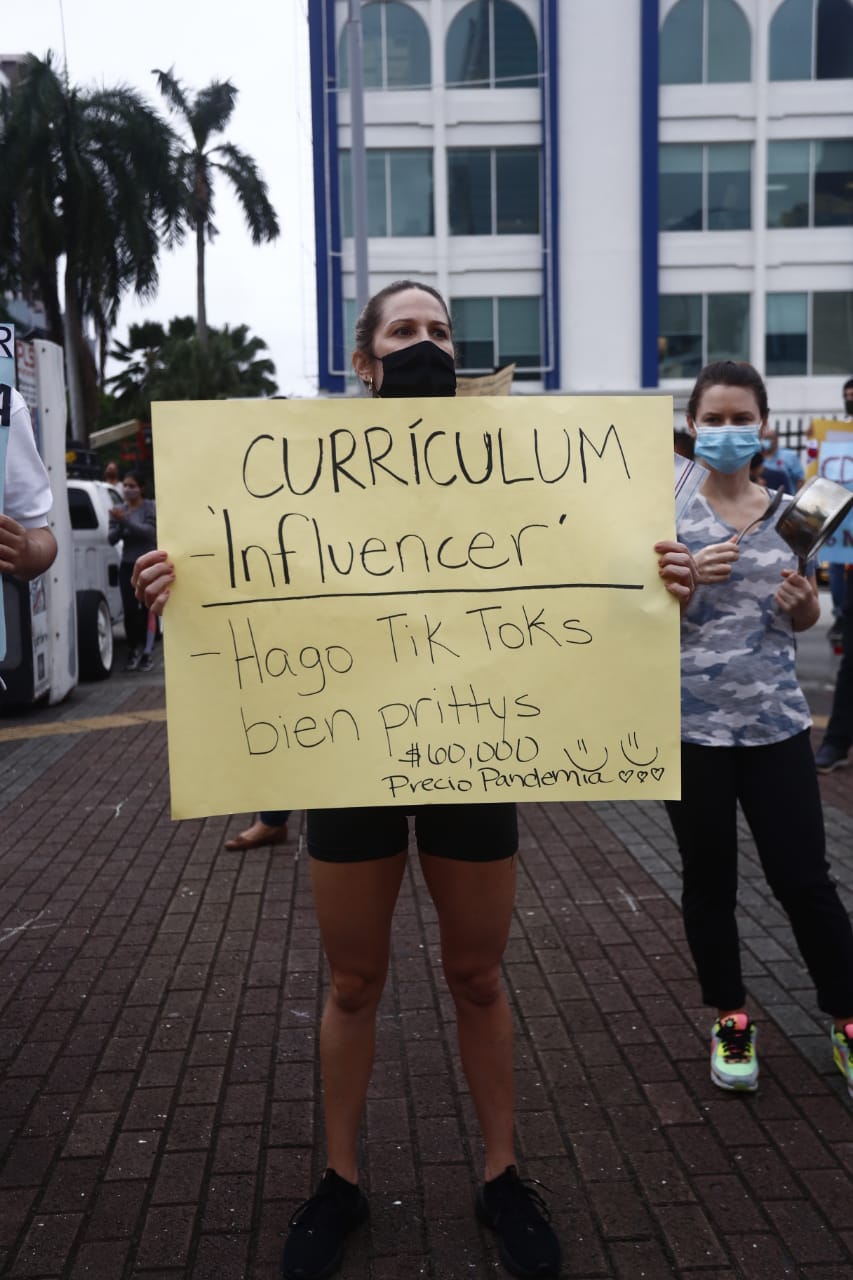 CURRÍCULUM
- 'Influencer'
- Hago Tik Toks
bien prittys
$60,000
Precio Pandemia
R